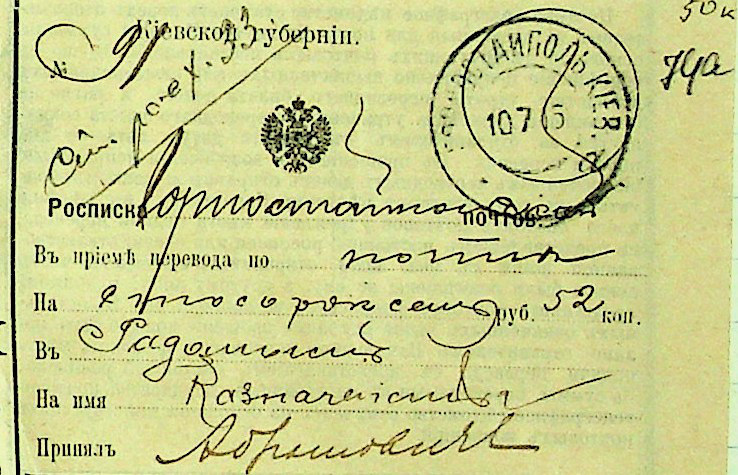 50 к
Кіевской губерніи.
№ 91
ГОРНОСТАЙПОЛЬ КІЕВ.
10 7 15
Росписка Горностайпольской почтов.
Въ пріемѣ перевода по почтѣ
На сто сорок семь руб. 52 коп.
Въ Радомысль
На имя Казначейства
Принялъ Абрамовичъ